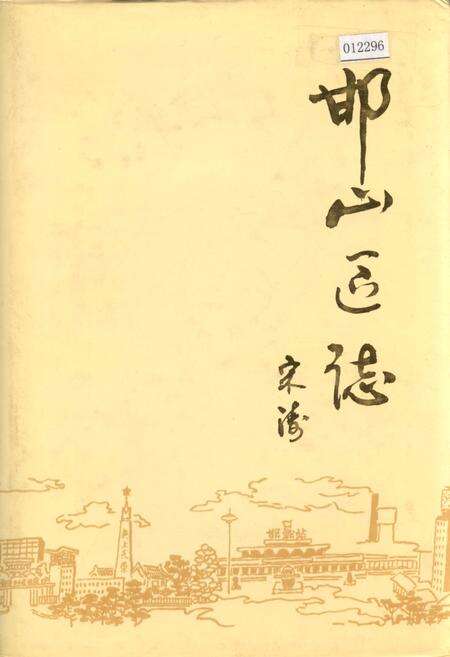 012296
邯山区誌
宋涛
邯郸站